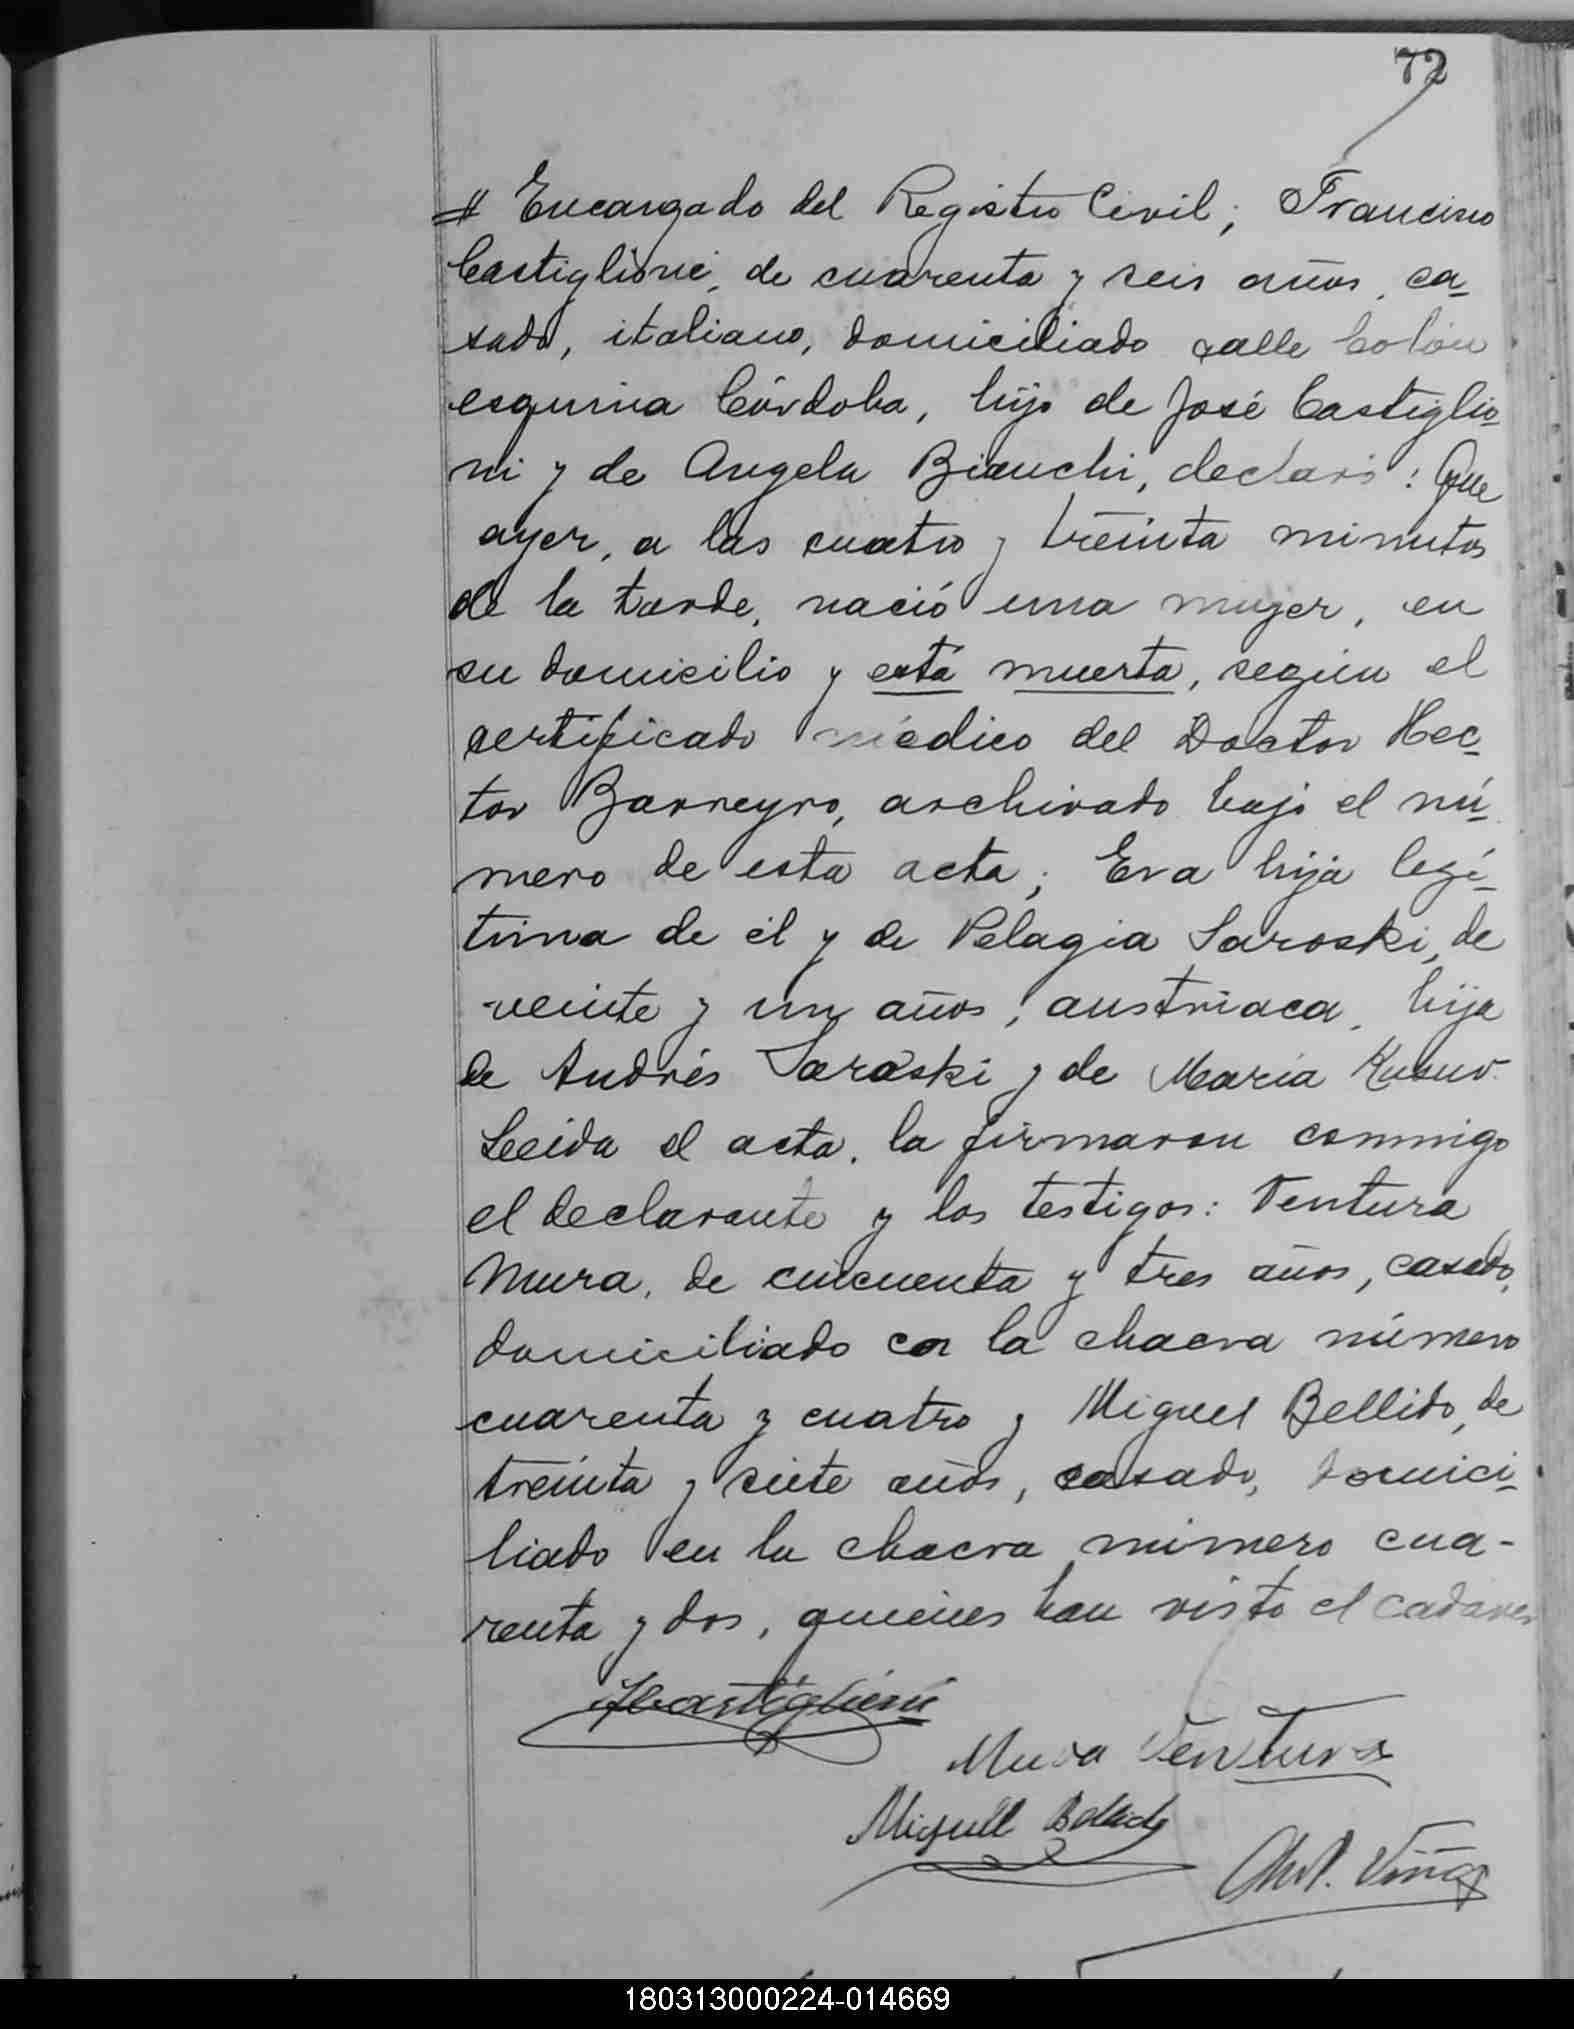 72
Encargado del Registro Civil; Francisco
Castiglioni, de cuarenta y seis años, ca-
sado, italiano, domiciliado calle Colón
esquina Córdoba, hijo de José Castiglio-
ni y de Angela Bianchi, declaró: Que
ayer, a las cuatro y treinta minutos
de la tarde, nació una mujer, en
su domicilio y está muerta, según el
certificado médico del Doctor Hec-
tor Barreyro, archivado bajo el nú-
mero de esta acta; Eva hija legí-
tima de él y de Pelagia Saroski, de
veinte y un años, austriaca, hija
de Andrés Saroski y de María
Leida el acta, la firmaron conmigo
el declarante y los testigos: Ventura
Mura, de cincuenta y tres años, casado,
domiciliado en la chacra número
cuarenta y cuatro y Miguel Bellido, de
treinta y siete años, casado, domici-
liado en la chacra número cua-
renta y dos, quienes han visto el cadaver
FCastiglioni
Mura Ventura
Miguel Bellido
Viñas
180313000224-014669